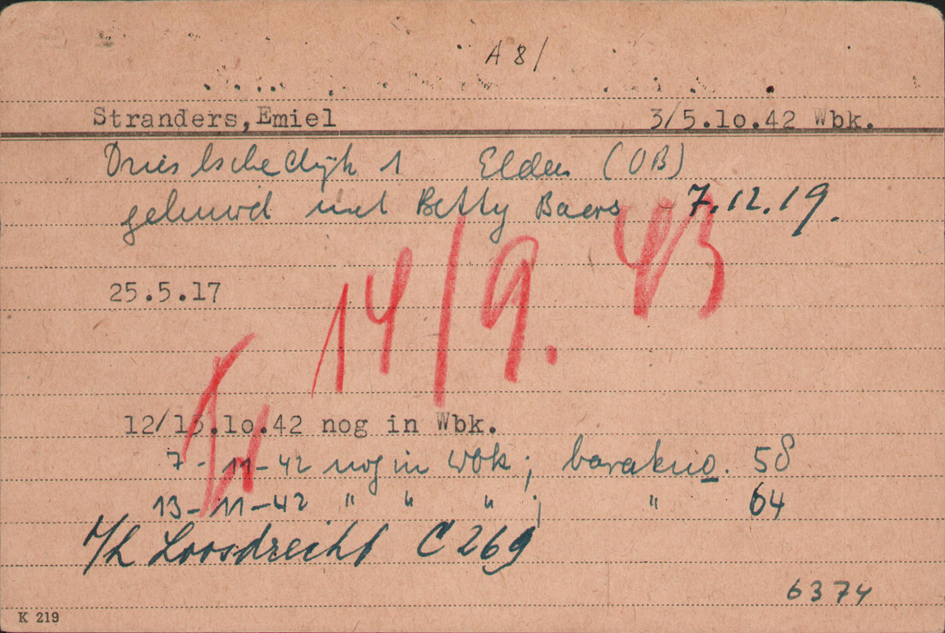 A 8/
Stranders,Emiel 3/5.10.42 Wbk.
Drielschedijk 1 Elden (OB)
gehuwd met Betty Baers 7.12.19.
14/9. 43
25.5.17
12/13.10.42 nog in Wbk.
7-11-42 nog in Wbk; barak no. 58
13-11-42 " " " ; " 64
Loosdrecht C 269
6374
K 219